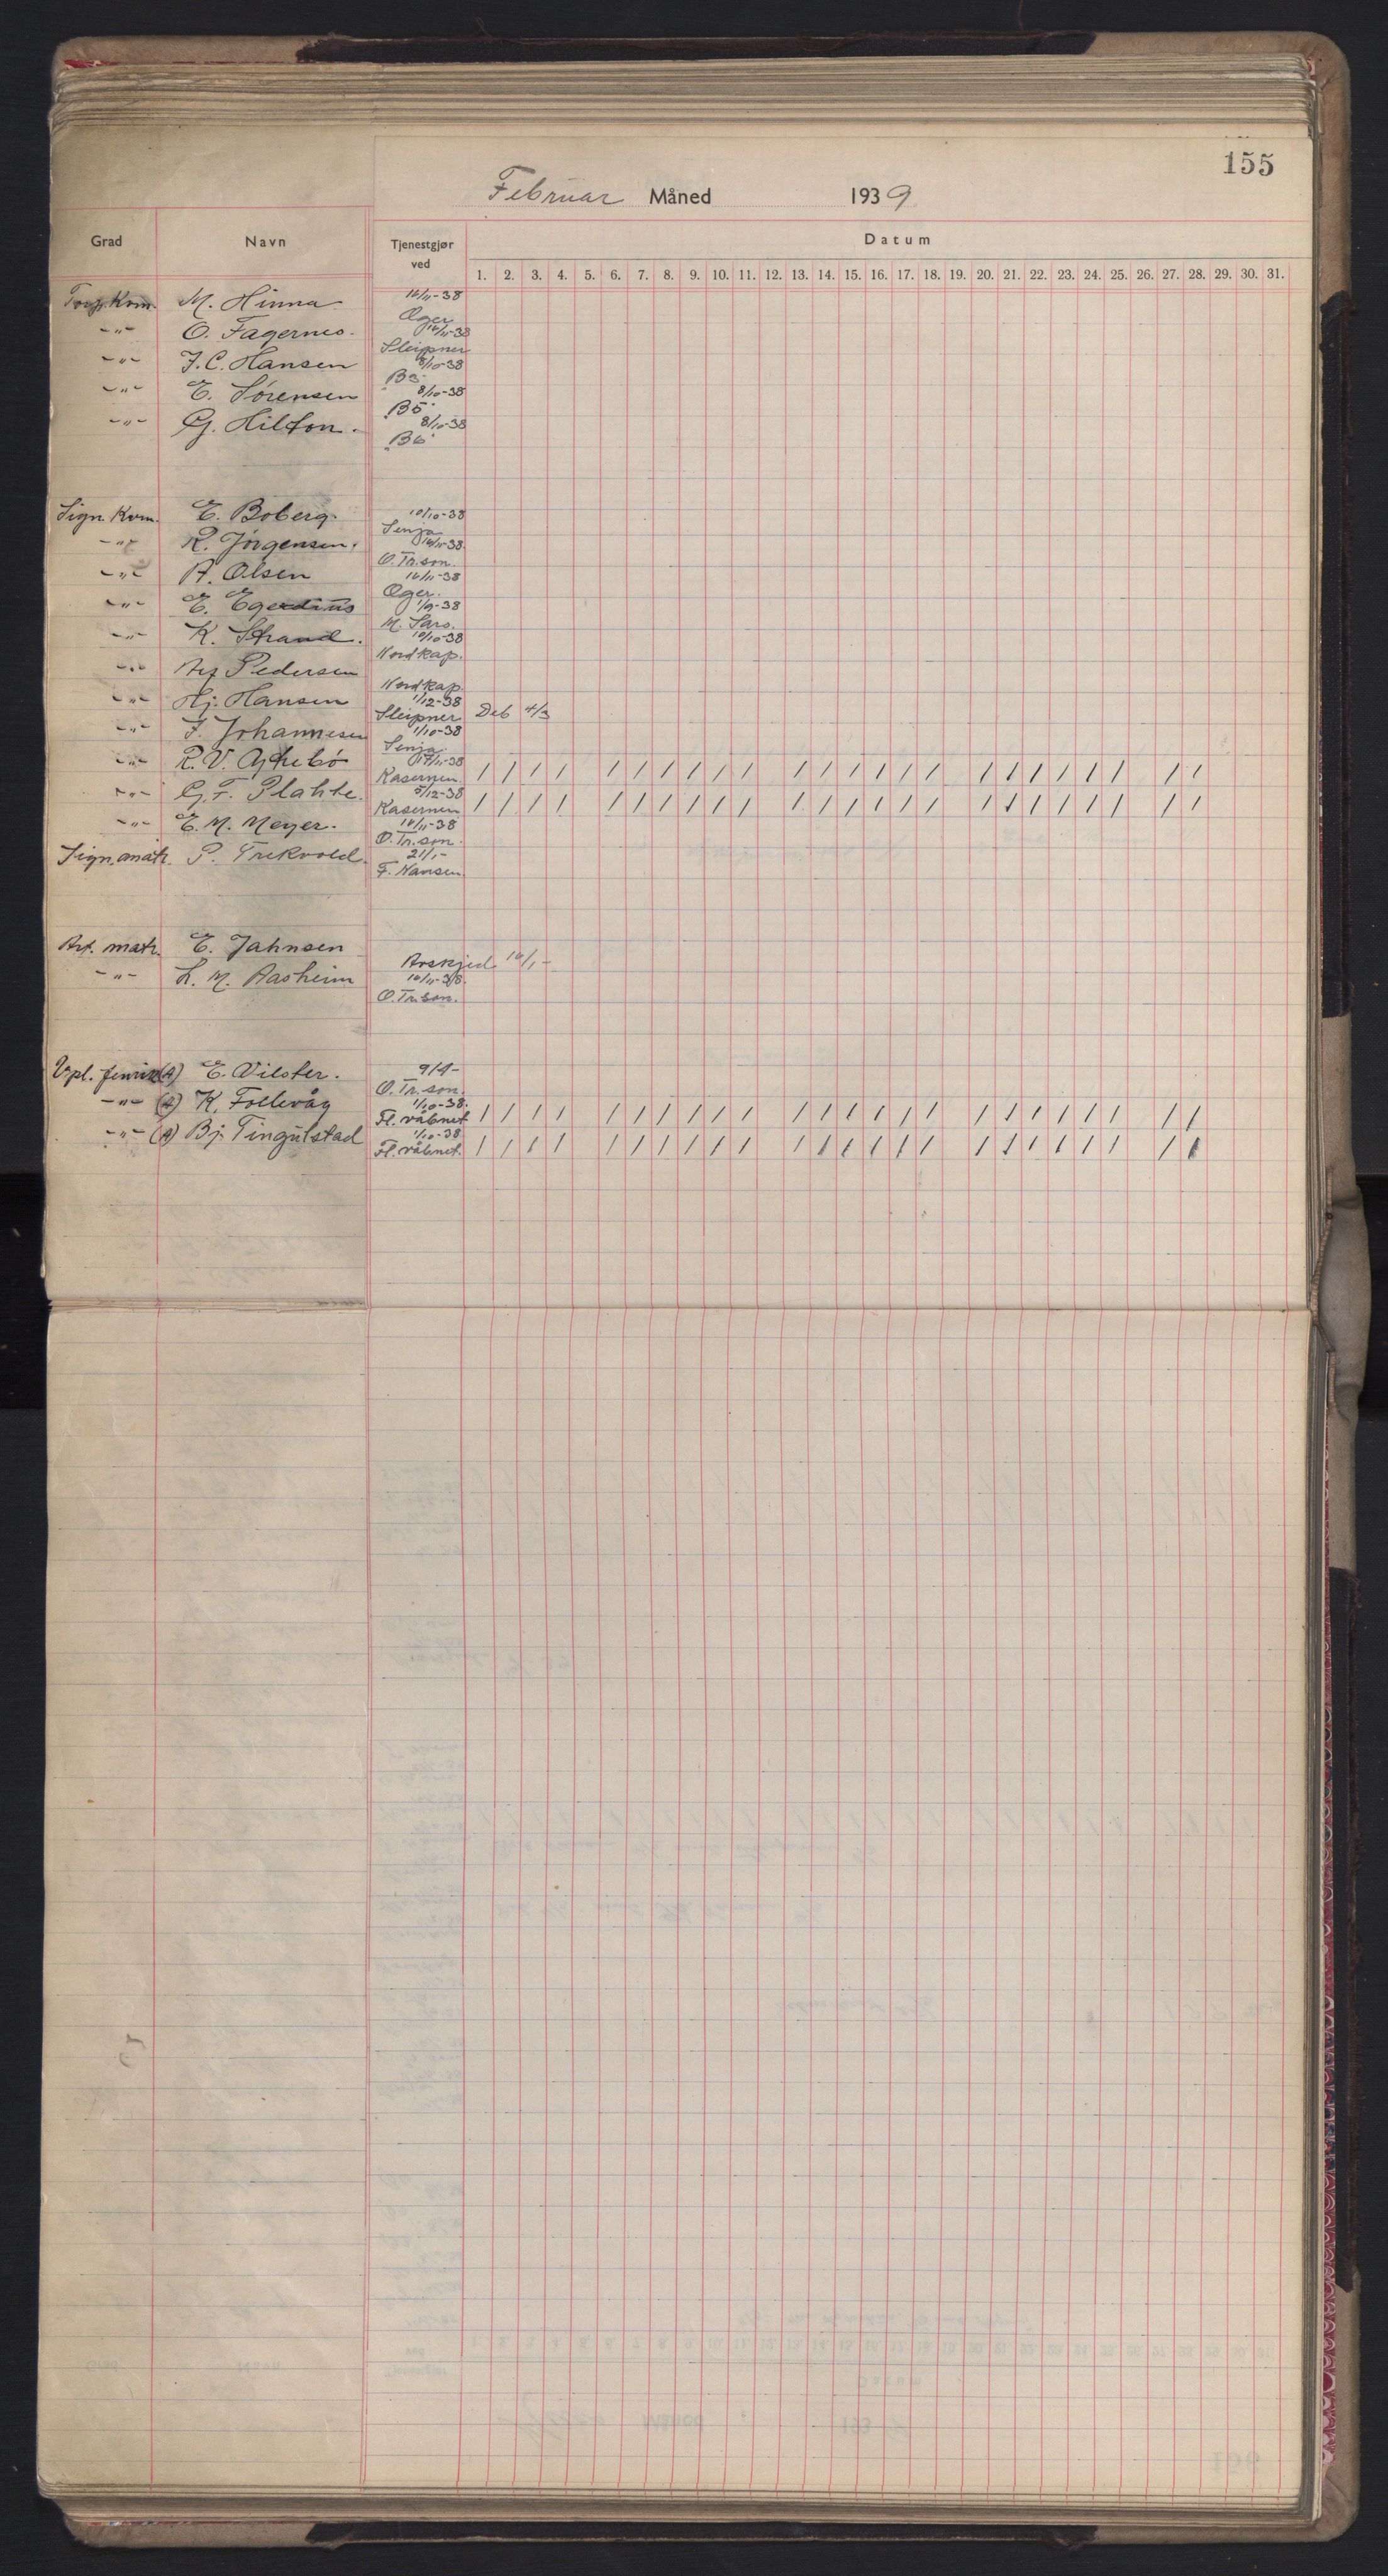 155
Februar Måned 1939
Grad Navn Tjenestgjør ved Datum
1. 2. 3. 4. 5. 6. 7. 8. 9. 10. 11. 12. 13. 14. 15. 16. 17. 18. 19. 20. 21. 22. 23. 24. 25. 26. 27. 28. 29. 30. 31.
Torp. Kvm. M. Hinna 16/11-38 Æger
-"- O. Fagernes. 16/11-38 Sleipner
-"- J. C. Hansen 8/10-38 "B3"
-"- E. Sørensen 8/10-38 "B5"
-"- G. Hilton. 8/10-38 "B6"
Sign. Kvm. E. Boberg. 10/10-38 Senja
-"- R. Jørgensen. 16/11-38. O. Tr.son.
-"- A. Olsen 16/11-38 Æger.
-"- E. Egerdius 1/9-38 M. Sars.
-"- K. Strand. 10/10-38 Nordkap.
-"- Arf Pedersen Nordkap.
-"- Hj. Hansen 1/12-38 Sleipner Deb 4/3
-"- J. Johannesen 1/10-38 Senja.
-"- R. V. 17/11-38 Kasernen. / / / / / / / / / / / / / / / / / / / / / / / /
-"- G. F. Plahte. 5/12-38 Kasernen / / / / / / / / / / / / / / / / / / / / / / / /
-"- E. M. Meyer. 16/11-38 O. Tr.son.
Sign. matr. P. Trekvold. 21/1- F. Nansen.
Art. matr. E. Jahnsen Avskjed 16/1-
-"- L. M. Aasheim 16/11-38. O. Tr.son.
Vpl. fenrik (A) E. Vilster. 9/4- O. Tr. son.
-"- (A) K. Follevåg 1/10-38. Fl. våbnet / / / / / / / / / / / / / / / / / / / / / / / /
-"- (A) Bj. Tingulstad 1/10-38 Fl. våbnet. / / / / / / / / / / / / / / / / / / / / / / / /